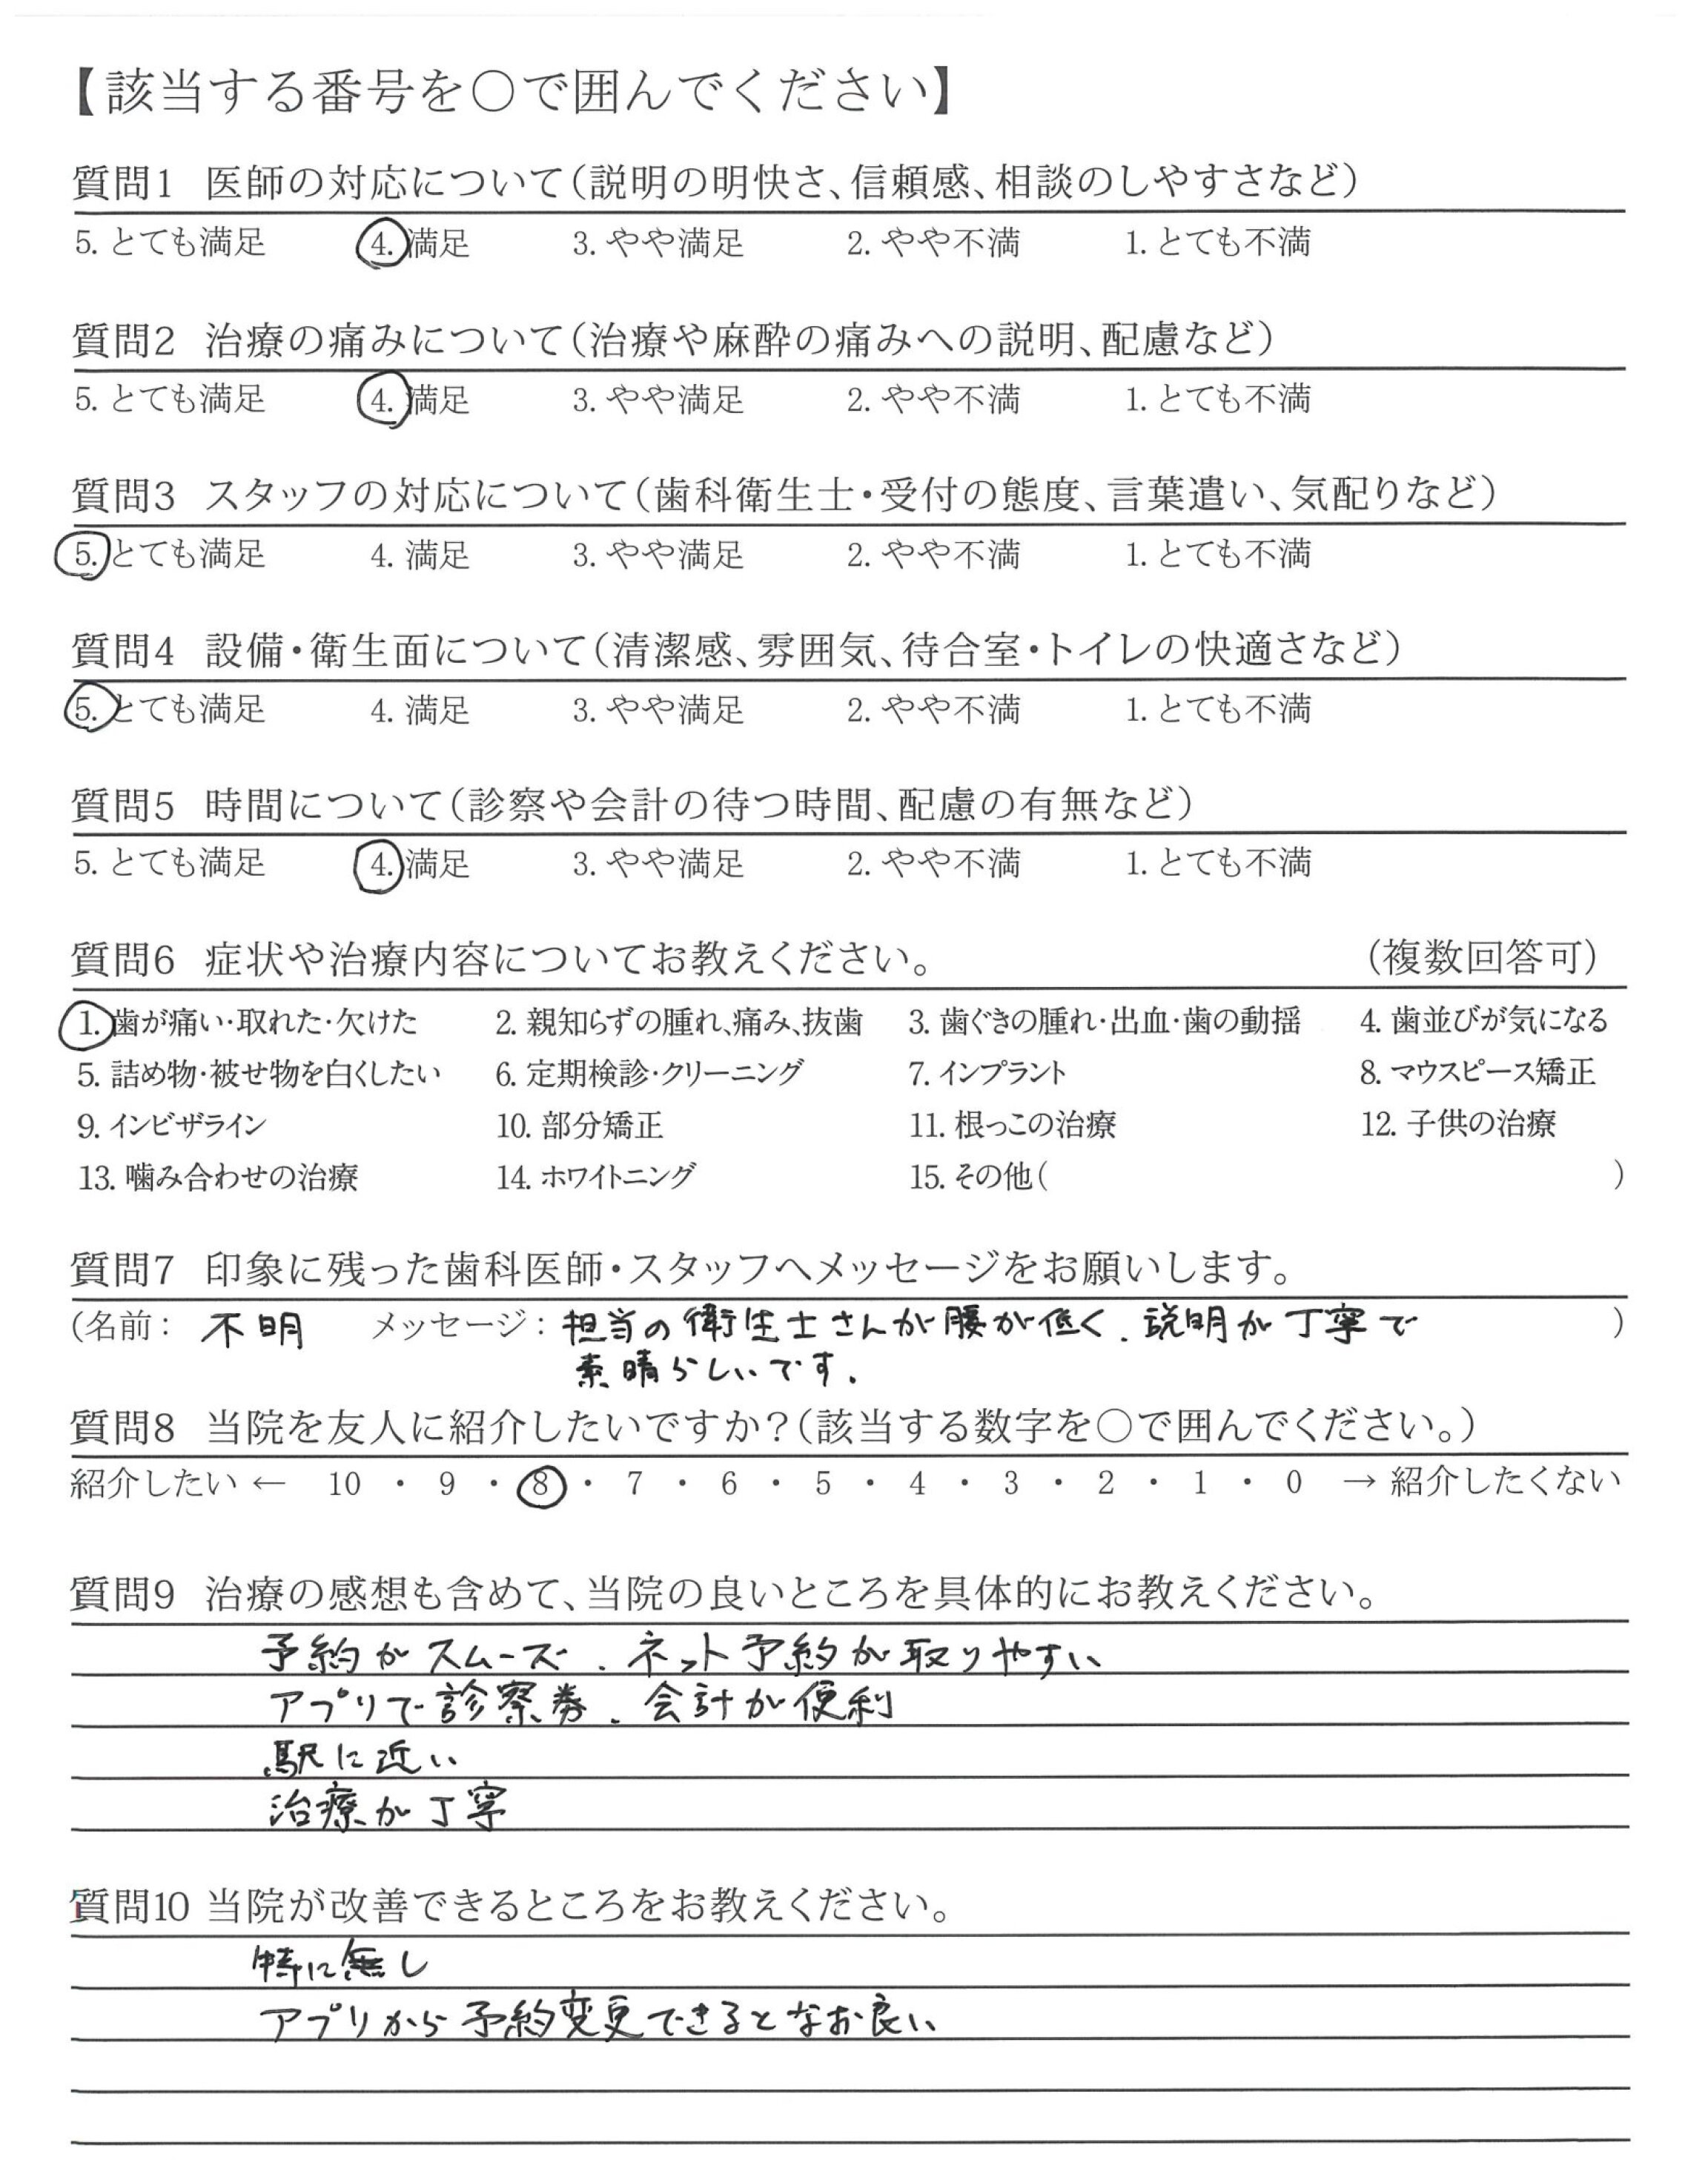 【該当する番号を○で囲んでください】
質問1 医師の対応について(説明の明快さ、信頼感、相談のしやすさなど)
5. とても満足 4. 満足 3. やや満足 2. やや不満 1. とても不満
質問2 治療の痛みについて(治療や麻酔の痛みへの説明、配慮など)
5. とても満足 4. 満足 3. やや満足 2. やや不満 1. とても不満
質問3 スタッフの対応について(歯科衛生士・受付の態度、言葉遣い、気配りなど)
5. とても満足 4. 満足 3. やや満足 2. やや不満 1. とても不満
質問4 設備・衛生面について(清潔感、雰囲気、待合室・トイレの快適さなど)
5. とても満足 4. 満足 3. やや満足 2. やや不満 1. とても不満
質問5 時間について(診察や会計の待つ時間、配慮の有無など)
5. とても満足 4. 満足 3. やや満足 2. やや不満 1. とても不満
質問6 症状や治療内容についてお教えください。 (複数回答可)
1. 歯が痛い・取れた・欠けた 2. 親知らずの腫れ、痛み、抜歯 3. 歯ぐきの腫れ・出血・歯の動揺 4. 歯並びが気になる
5. 詰め物・被せ物を白くしたい 6. 定期検診・クリーニング 7. インプラント 8. マウスピース矯正
9. インビザライン 10. 部分矯正 11. 根っこの治療 12. 子供の治療
13. 噛み合わせの治療 14. ホワイトニング 15. その他( )
質問7 印象に残った歯科医師・スタッフへメッセージをお願いします。
(名前: 不明 メッセージ: 担当の衛生士さんが腰が低く、説明が丁寧で )
素晴らしいです。
質問8 当院を友人に紹介したいですか?(該当する数字を○で囲んでください。)
紹介したい ← 10 ・ 9 ・ 8 ・ 7 ・ 6 ・ 5 ・ 4 ・ 3 ・ 2 ・ 1 ・ 0 → 紹介したくない
質問9 治療の感想も含めて、当院の良いところを具体的にお教えください。
予約がスムーズ、ネット予約が取りやすい
アプリで診察券、会計が便利
駅に近い
治療が丁寧
質問10 当院が改善できるところをお教えください。
特に無し
アプリから予約変更できるとなお良い